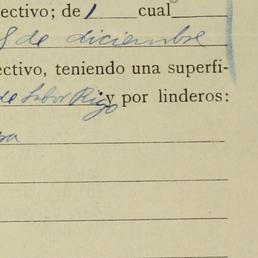 ectivo; de 1 cual
8 de diciembre
ectivo, teniendo una superfi-
de Labor Rigo y por linderos: